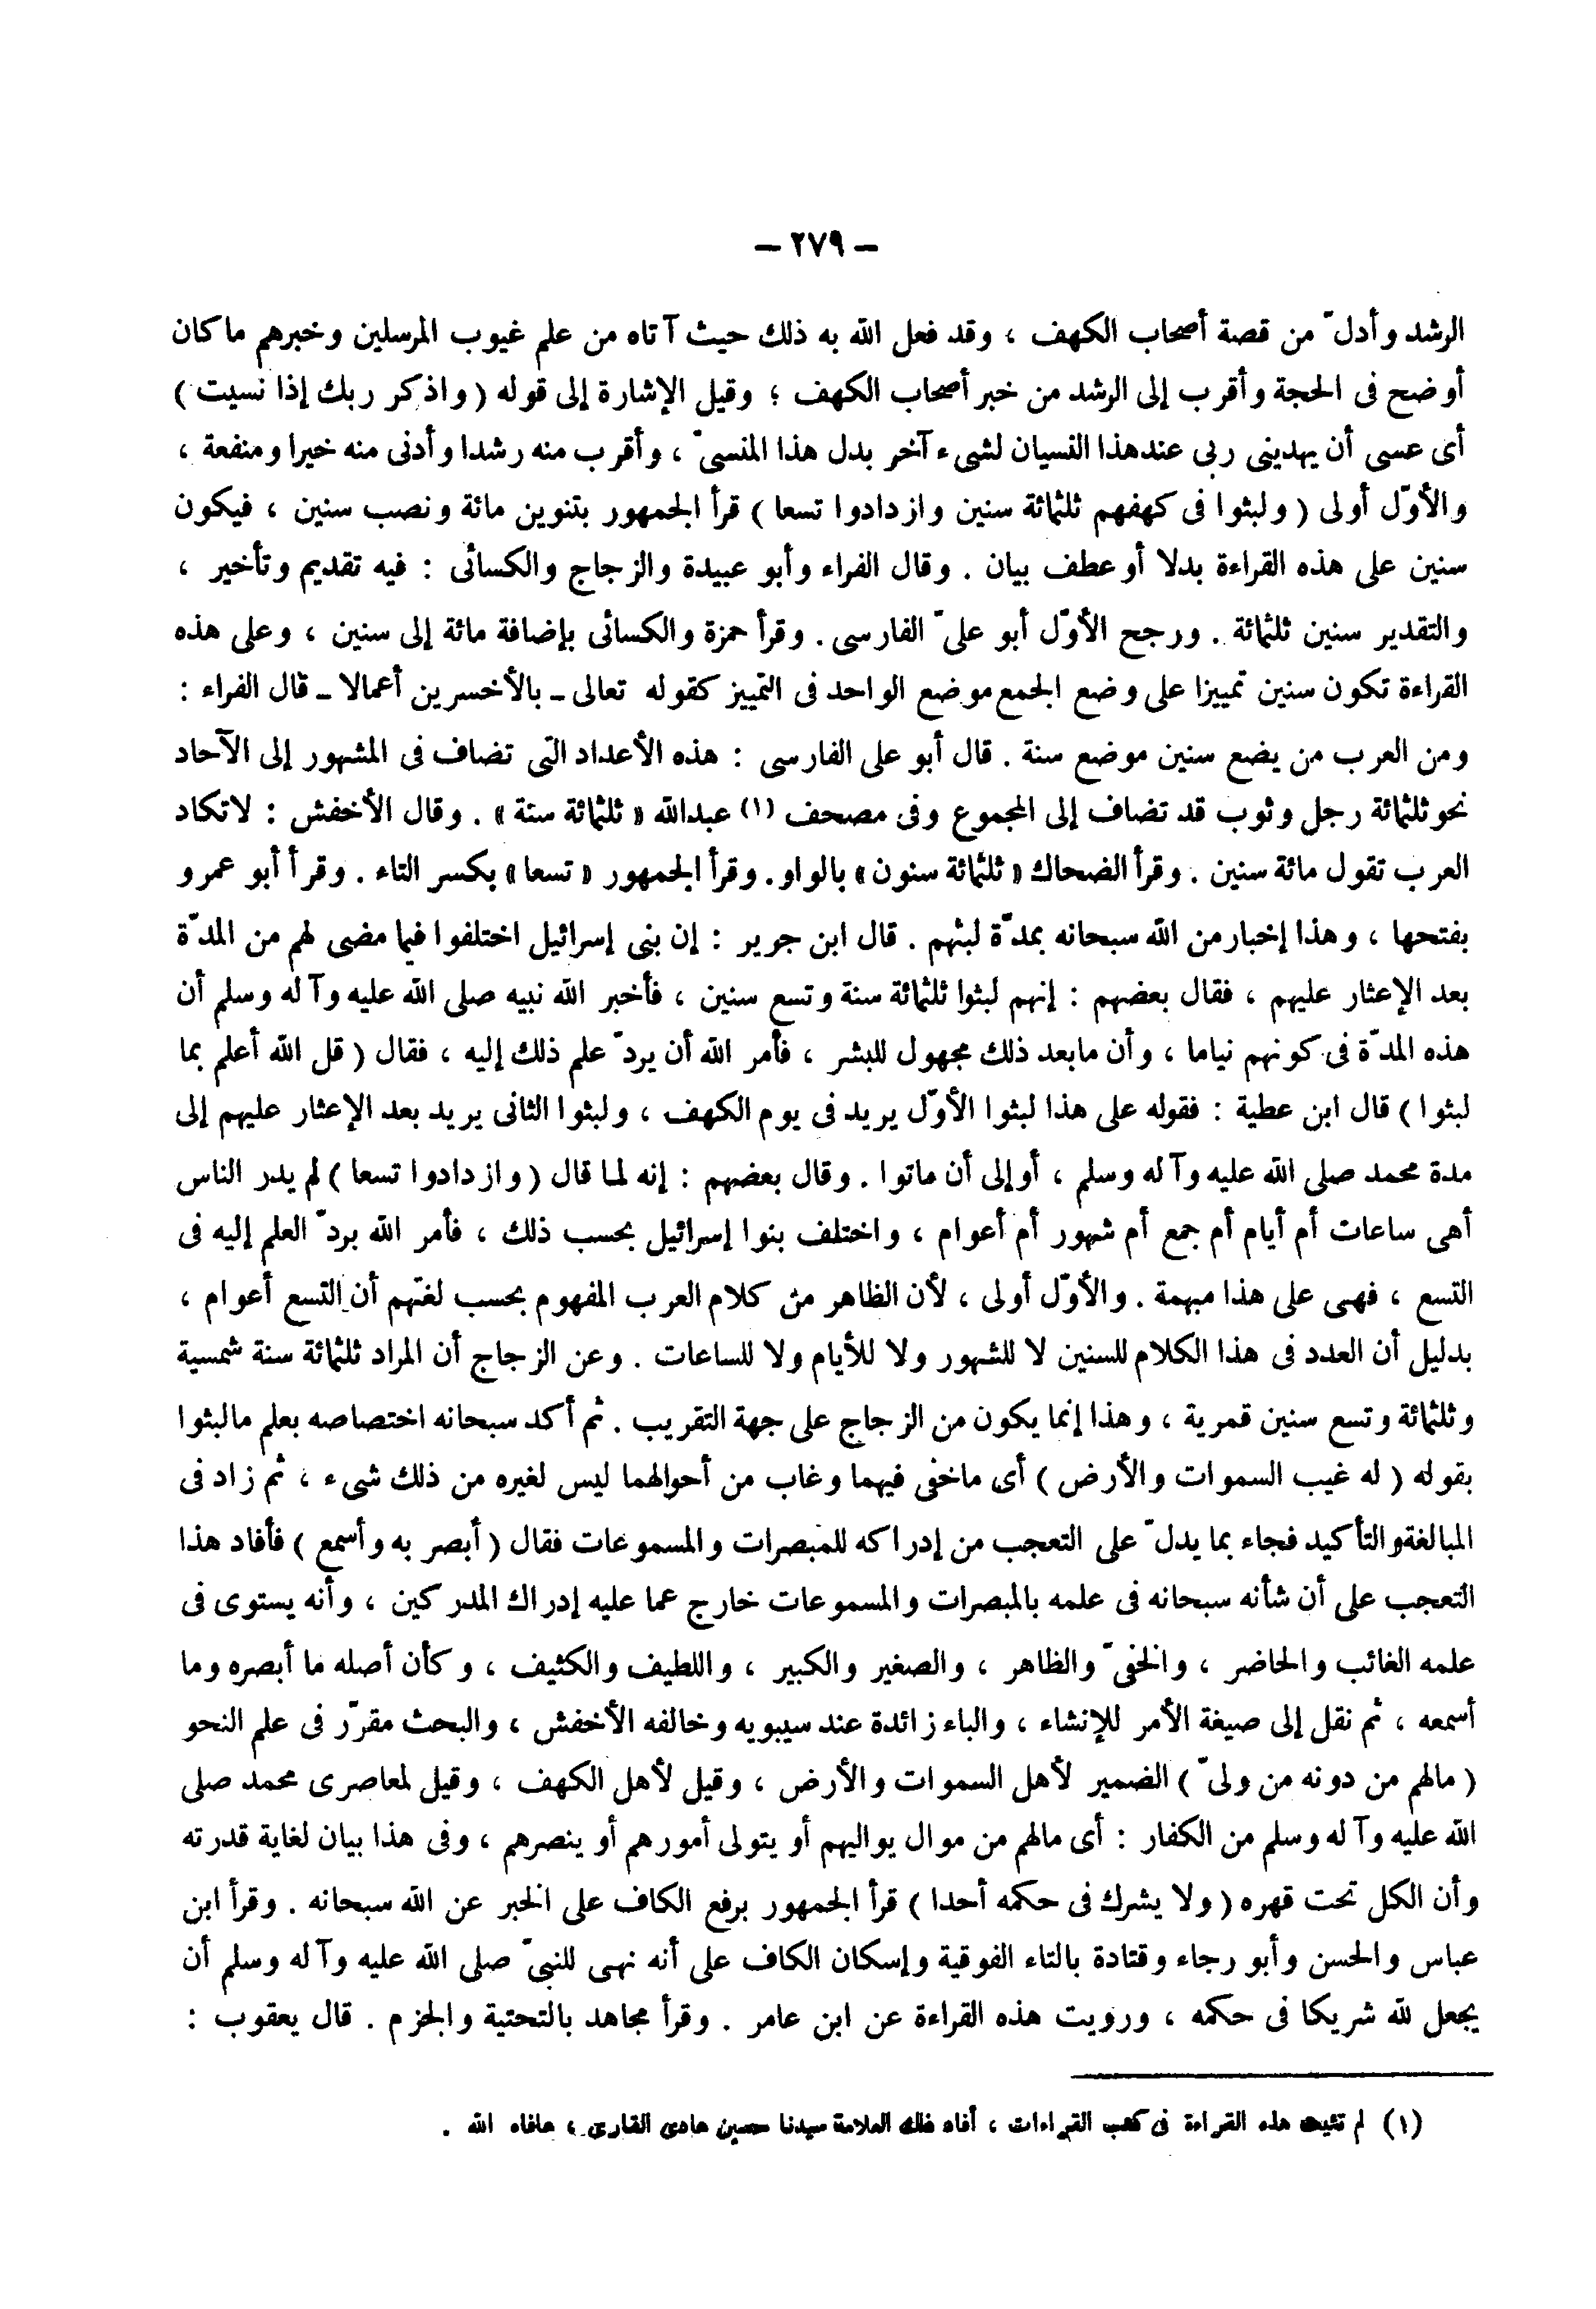 — ٢٧٩ —
الرشد وأدلّ من قصة أصحاب الكهف ، وقد فعل الله به ذلك حيث آتاه من علم غيوب المرسلين وخبرهم ما كان
أوضح فى الحجة وأقرب إلى الرشد من خبر أصحاب الكهف ؛ وقيل الإشارة إلى قوله ( واذكر ربك إذا نسيت )
أى عسى أن يهدينى ربى عند هذا النسيان لشىء آخر بدل هذا المنسىّ ، وأقرب منه رشدا وأدنى منه خيرا ومنفعة ،
والأوّل أولى ( ولبثوا فى كهفهم ثلثمائة سنين وازدادوا تسعا ) قرأ الجمهور بتنوين مائة ونصب سنين ، فيكون
سنين على هذه القراءة بدلا أو عطف بيان . وقال الفراء وأبو عبيدة والزجاج والكسائى : فيه تقديم وتأخير ،
والتقدير سنين ثلثمائة . ورجح الأوّل أبو علىّ الفارسى . وقرأ حمزة والكسائى بإضافة مائة إلى سنين ، وعلى هذه
القراءة تكون سنين تمييزا على وضع الجمع موضع الواحد فى التمييز كقوله تعالى ـ بالأخسرين أعمالا ـ قال الفراء :
ومن العرب من يضع سنين موضع سنة . قال أبو على الفارسى : هذه الأعداد التى تضاف فى المشهور إلى الآحاد
نحو ثلثمائة رجل وثوب قد تضاف إلى المجموع وفى مصحف (١) عبدالله « ثلثمائة سنة » . وقال الأخفش : لاتكاد
العرب تقول مائة سنين . وقرأ الضحاك « ثلثمائة سنون » بالواو . وقرأ الجمهور « تسعا » بكسر التاء . وقرأ أبو عمرو
بفتحها ، وهذا إخبار من الله سبحانه بمدّة لبثهم . قال ابن جرير : إن بنى إسرائيل اختلفوا فيما مضى لهم من المدّة
بعد الإعثار عليهم ، فقال بعضهم : إنهم لبثوا ثلثمائة سنة وتسع سنين ، فأخبر الله نبيه صلى الله عليه وآله وسلم أن
هذه المدّة فى كونهم نياما ، وأن مابعد ذلك مجهول للبشر ، فأمر الله أن يردّ علم ذلك إليه ، فقال ( قل الله أعلم بما
لبثوا ) قال ابن عطية : فقوله على هذا لبثوا الأوّل يريد فى يوم الكهف ، ولبثوا الثانى يريد بعد الإعثار عليهم إلى
مدة محمد صلى الله عليه وآله وسلم ، أو إلى أن ماتوا . وقال بعضهم : إنه لما قال ( وازدادوا تسعا ) لم يدر الناس
أهى ساعات أم أيام أم جمع أم شهور أم أعوام ، واختلف بنوا إسرائيل بحسب ذلك ، فأمر الله بردّ العلم إليه فى
التسع ، فهى على هذا مبهمة . والأوّل أولى ، لأن الظاهر من كلام العرب المفهوم بحسب لغتهم أن التسع أعوام ،
بدليل أن العدد فى هذا الكلام للسنين لا للشهور ولا للأيام ولا للساعات . وعن الزجاج أن المراد ثلثمائة سنة شمسية
وثلثمائة وتسع سنين قمرية ، وهذا إنما يكون من الزجاج على جهة التقريب . ثم أكد سبحانه اختصاصه بعلم مالبثوا
بقوله ( له غيب السموات والأرض ) أى ماخفى فيهما وغاب من أحوالهما ليس لغيره من ذلك شىء ، ثم زاد فى
المبالغة والتأكيد فجاء بما يدلّ على التعجب من إدراكه للمبصرات والمسموعات فقال ( أبصر به وأسمع ) فأفاد هذا
التعجب على أن شأنه سبحانه فى علمه بالمبصرات والمسموعات خارج عما عليه إدراك المدركين ، وأنه يستوى فى
علمه الغائب والحاضر ، والخفىّ والظاهر ، والصغير والكبير ، واللطيف والكثيف ، وكأن أصله ما أبصره وما
أسمعه ، ثم نقل إلى صيغة الأمر للإنشاء ، والباء زائدة عند سيبويه وخالفه الأخفش ، والبحث مقرّر فى علم النحو
( مالهم من دونه من ولىّ ) الضمير لأهل السموات والأرض ، وقيل لأهل الكهف ، وقيل لمعاصرى محمد صلى
الله عليه وآله وسلم من الكفار : أى مالهم من موال يواليهم أو يتولى أمورهم أو ينصرهم ، وفى هذا بيان لغاية قدرته
وأن الكل تحت قهره ( ولا يشرك فى حكمه أحدا ) قرأ الجمهور برفع الكاف على الخبر عن الله سبحانه . وقرأ ابن
عباس والحسن وأبو رجاء وقتادة بالتاء الفوقية وإسكان الكاف على أنه نهى للنبىّ صلى الله عليه وآله وسلم أن
يجعل لله شريكا فى حكمه ، ورويت هذه القراءة عن ابن عامر . وقرأ مجاهد بالتحتية والجزم . قال يعقوب :
(١) لم تثبت هذه القراءة فى كتب القراءات ، أفاد ذلك العلامة سيدنا حسين هادى القارى ، عافاه الله .